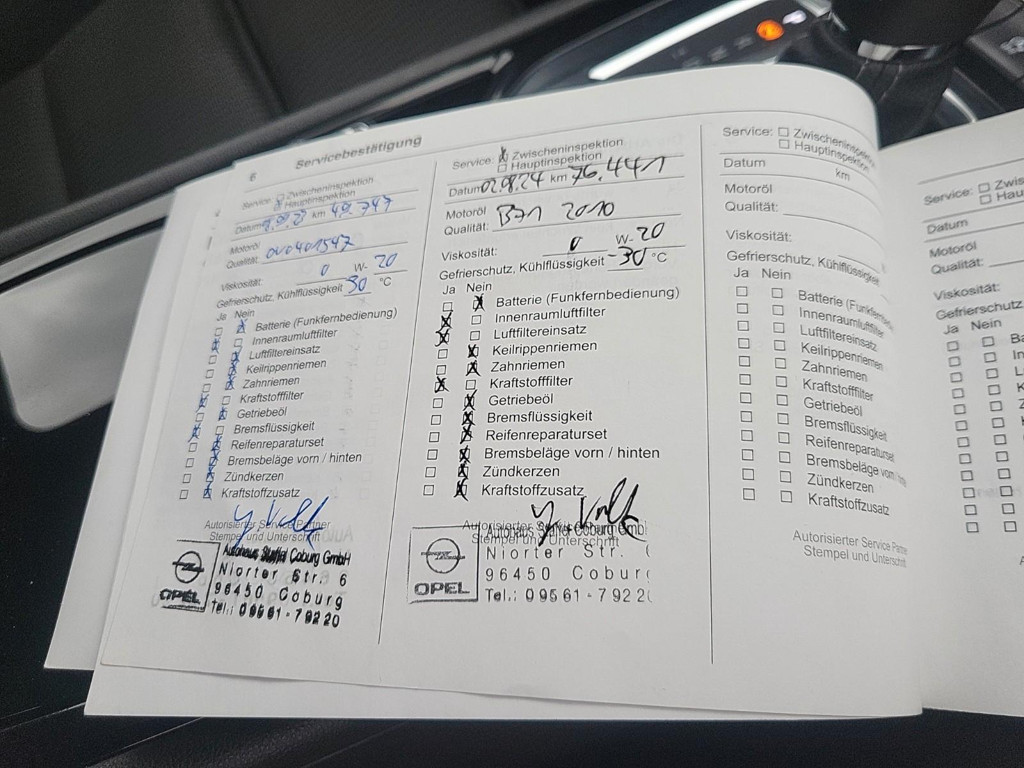 6
Servicebestätigung
Service: Zwischeninspektion
Hauptinspektion
Datum km 49.747
Motoröl
Qualität: OV0401547
Viskosität: 0 W- 20
Gefrierschutz, Kühlflüssigkeit 30 °C
Ja Nein
Batterie (Funkfernbedienung)
Innenraumluftfilter
Luftfiltereinsatz
Keilrippenriemen
Zahnriemen
Kraftstofffilter
Getriebeöl
Bremsflüssigkeit
Reifenreparaturset
Bremsbeläge vorn / hinten
Zündkerzen
Kraftstoffzusatz
Autorisierter Service Partner
Stempel und Unterschrift
Autohaus Coburg GmbH
Niorter Str. 6
96450 Coburg
Tel.: 09561-79220
OPEL
Service: Zwischeninspektion
Hauptinspektion
Datum 02.08.24 km 76.441
Motoröl
Qualität: B71 2010
Viskosität: 0 W- 20
Gefrierschutz, Kühlflüssigkeit -30 °C
Ja Nein
Batterie (Funkfernbedienung)
Innenraumluftfilter
Luftfiltereinsatz
Keilrippenriemen
Zahnriemen
Kraftstofffilter
Getriebeöl
Bremsflüssigkeit
Reifenreparaturset
Bremsbeläge vorn / hinten
Zündkerzen
Kraftstoffzusatz
Autorisierter
Stempel und Unterschrift
Autohaus Coburg GmbH
Niorter Str.
96450 Coburg
Tel.: 09561-7922
OPEL
Service: Zwischeninspektion
Hauptinspektion
Datum km
Motoröl
Qualität:
Viskosität:
Gefrierschutz, Kühlflüssigkeit
Ja Nein
Batterie (Funkfer
Innenraumluftfilter
Luftfiltereinsatz
Keilrippenriemen
Zahnriemen
Kraftstofffilter
Getriebeöl
Bremsflüssigkeit
Reifenreparaturset
Bremsbeläge vorn
Zündkerzen
Kraftstoffzusatz
Autorisierter Service Partne
Stempel und Unterschrift
Service: Zwis
Hau
Datum
Motoröl
Qualität:
Viskosität:
Gefrierschutz
Ja Nein